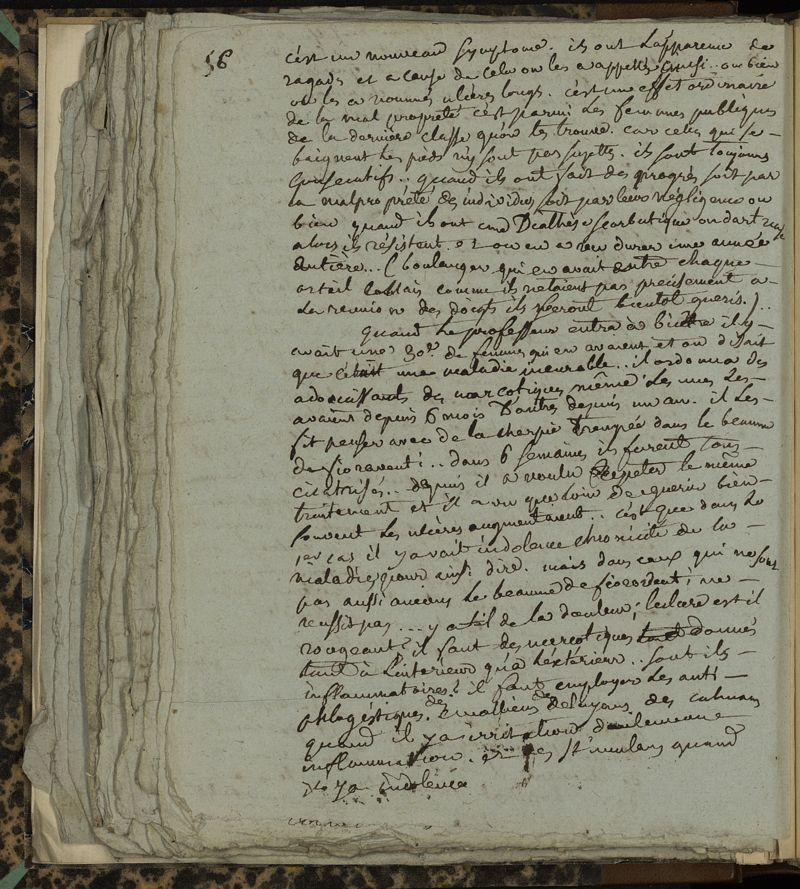 56
c'est un nouveau symptome. ils ont l'apparence de
ragades et a cause de cela on les a appellés ainsi.. ou bien
on les a nommés ulcères longs. c'est une effet ordinaire
de la mal propreté c'est parmi les femmes publiques
de la dernière classe qu'on les trouve. car celles qui se
baignent les pieds n'y sont pas sujettes. ils sont toujours
consecutifs.. quand ils ont fait des progrès soit par
la malpropreté des individus soit par leurs négligence ou
bien quand ils ont une Diathese scorbutique ou dartreuse
alors ils résistent. et on en a vu durer une année
entière... (boulanger qui en avait entre chaque
orteil mais comme ils n'etaient pas precisement a
la reunion des doigts ils seront bientot gueris.)..
quand le professeur entra à bicêtre il y
avait une 30e. de femmes qui en avaient et on disait
que c'était une maladie incurable.. il ordonna des
adoucissants des narcotiques même les unes les
avaient depuis 6 mois d'autres depuis un an. il les
fit penser avec de la charpie trempée dans le beaume
de fioraventi.. dans 6 semaines ils furent tous
cicatrisés.. depuis il a voulu repeter le même
traitement et il a vu que loin de guerir bien
souvent les ulcères augmentaient.. c'est que dans le
1er cas il y avait indolence chronicité de la
maladie pour ainsi dire. mais dans ceux qui ne sont
pas aussi anciens le beaume de ne
reussit pas... y a til de la douleur; l'ulcere est il
rongeant? il faut des narcotiques donnés
tant à l'intérieur qu'à l'extérieur.. sont ils
inflammatoires? il faut employer les anti
phlogistiques. des emolliens de des calmans
quand il y a irritation seulement
inflammation. et les stimulans quand
il y a indolence